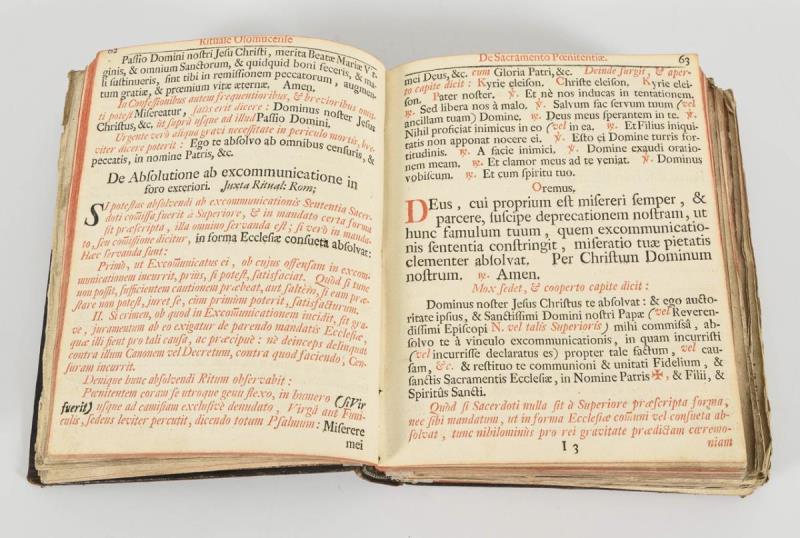 62
Rituale Olomucense
Passio Domini nostri Jesu Christi, merita Beatæ Mariæ Vir-
ginis, & omnium Sanctorum, & quidquid boni feceris, & ma-
li sustinueris, sint tibi in remissionem peccatorum, augmen-
tum gratiæ, & præmium vitæ æternæ. Amen.
In Confessionibus autem frequentioribus, & brevioribus omit-
ti potest Misereatur, satis erit dicere: Dominus noster Jesus
Christus, &c. ut suprà usque ad illud Passio Domini.
Urgente verò aliqua gravi necessitate in periculo mortis, bre-
viter dicere poterit: Ego te absolvo ab omnibus censuris, &
peccatis, in nomine Patris, &c.
De Absolutione ab excommunicatione in
foro exteriori. Juxta Ritual: Rom;
SI potestas absolvendi ab excommunicationis Sententia Sacer-
doti comissa fuerit à Superiore, & in mandato certa forma
sit præscripta, illa omnino servanda est; si verò in manda-
to, seu comissione dicitur, in forma Ecclesiæ consueta absolvat:
Hæc servanda sunt:
Primò, ut Excommunicatus ei, ob cujus offensam in excom-
municationem incurrit, priùs, si potest, satisfaciat. Quòd si tunc
non possit, sufficientem cautionem præbeat, aut saltem, si eam præ-
stare non potest, juret se, cùm primùm poterit, satisfacturum.
II. Si crimen, ob quod in Excommunicationem incidit, sit gra-
ve, juramentum ab eo exigatur de parendo mandatis Ecclesiæ,
quæ illi fient pro tali causa, ac præcipuè: nè deinceps delinquat
contra illum Canonem vel Decretum, contra quod faciendo, Cen-
suram incurrit.
Denique hunc absolvendi Ritum observabit:
Pœnitentem coram se utroque genu flexo, in humero (si Vir
fuerit) usque ad camisiam exclusivè denudato, Virgâ aut Funi-
culis, sedens leviter percutit, dicendo totum Psalmum: Miserere
mei
De Sacramento Pœnitentiæ. 63
mei Deus, &c. cum Gloria Patri, &c. Deinde surgit, & aper-
to capite dicit: Kyrie eleison. Christe eleison. Kyrie elei-
son. Pater noster. ℣. Et nè nos inducas in tentationem.
℟. Sed libera nos à malo. ℣. Salvum fac servum tuum (vel
ancillam tuam) Domine. ℟. Deus meus sperantem in te. ℣.
Nihil proficiat inimicus in eo (vel in ea. ℟. Et Filius iniqui-
tatis non apponat nocere ei. ℣. Esto ei Domine turris for-
titudinis. ℟. A facie inimici. ℣. Domine exaudi oratio-
nem meam. ℟. Et clamor meus ad te veniat. ℣. Dominus
vobiscum. ℟. Et cum spiritu tuo.
Oremus.
DEus, cui proprium est misereri semper, &
parcere, suscipe deprecationem nostram, ut
hunc famulum tuum, quem excommunicatio-
nis sententia constringit, miseratio tuæ pietatis
clementer absolvat. Per Christum Dominum
nostrum. ℟. Amen.
Mox sedet, & cooperto capite dicit:
Dominus noster Jesus Christus te absolvat: & ego aucto-
ritate ipsius, & Sanctissimi Domini nostri Papæ (vel Reveren-
dissimi Episcopi N. vel talis Superioris) mihi commissâ, ab-
solvo te à vinculo excommunicationis, in quam incurristi
(vel incurrisse declaratus es) propter tale factum, vel cau-
sam, &c. & restituo te communioni & unitati Fidelium, &
sanctis Sacramentis Ecclesiæ, in Nomine Patris ✠, & Filii, &
Spiritûs Sancti.
Quòd si Sacerdoti nulla sit à Superiore præscripta forma,
nec sibi mandatum, ut in forma Ecclesiæ comuni vel consueta ab-
solvat, tunc nihilominùs pro rei gravitate prædictam cæremo-
I 3 niam